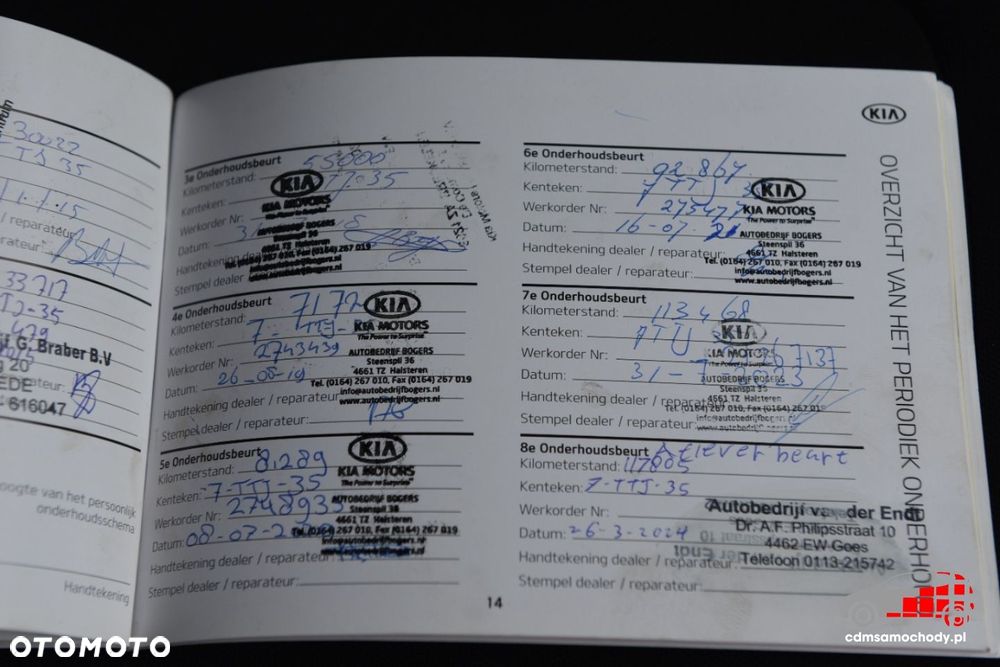 30022
35
1.15
/ reparateur:
rateur:
33717
35
G. Braber B.V.
20
EDE
616047
rateur:
oogte van het persoonlijk
onderhoudsschema
Handtekening
3e Onderhoudsbeurt 55000
Kilometerstand:
Kenteken:
Werkorder Nr:
Datum:
Handtekening dealer
Stempel dealer
KIA
KIA MOTORS
The Power to Surprise
AUTOBEDRIJF BOGERS
4661 TZ Halsteren
Tel. (0164) 267 010, Fax (0164) 267 019
4e Onderhoudsbeurt
Kilometerstand: 7172
Kenteken: 7-TTJ-
Werkorder Nr: 2743439
Datum: 26-06-19
Handtekening dealer / reparateur:
Stempel dealer / reparateur:
KIA
KIA MOTORS
The Power to Surprise
AUTOBEDRIJF BOGERS
Steenspil 36
4661 TZ Halsteren
Tel. (0164) 267 010, Fax (0164) 267 019
info@autobedrijfbogers.nl
www.autobedrijfbogers.nl
5e Onderhoudsbeurt
Kilometerstand: 8.289
Kenteken: 7-TTJ-35
Werkorder Nr: 2748935
Datum: 08-07-2
Handtekening dealer / reparateur:
Stempel dealer / reparateur:
KIA
KIA MOTORS
The Power to Surprise
AUTOBEDRIJF BOGERS
Steenspil 36
4661 TZ Halsteren
Tel. (0164) 267 010, Fax (0164) 267 019
info@autobedrijfbogers.nl
www.autobedrijfbogers.nl
14
KIA
OVERZICHT VAN HET PERIODIEK ONDERHOU
6e Onderhoudsbeurt
Kilometerstand: 92.867
Kenteken: 7TTJ3
Werkorder Nr: 275477
Datum: 16-07-21
Handtekening dealer / reparateur:
Stempel dealer / reparateur:
KIA
KIA MOTORS
The Power to Surprise
AUTOBEDRIJF BOGERS
Steenspil 36
4661 TZ Halsteren
Tel. (0164) 267 010, Fax (0164) 267 019
info@autobedrijfbogers.nl
www.autobedrijfbogers.nl
7e Onderhoudsbeurt
Kilometerstand: 113468
Kenteken: 7TTJ
Werkorder Nr: 67137
Datum: 31-7-2023
Handtekening dealer / reparateur:
Stempel dealer / reparateur:
KIA
KIA MOTORS
AUTOBEDRIJF BOGERS
Steenspil 36
4661 TZ Halsteren
Tel. (0164) 267 010, Fax (0164) 267 019
info@autobedrijfbogers.nl
www.autobedrijfbogers.nl
8e Onderhoudsbeurt Afleverbeurt
Kilometerstand: 117805
Kenteken: 7-TTJ-35
Werkorder Nr:
Datum: 26-3-2024
Handtekening dealer / reparateur:
Stempel dealer / reparateur:
Autobedrijf van der Endt
Dr. A.F. Philipsstraat 10
4462 EW Goes
Telefoon 0113-215742
OTOMOTO
cdmsamochody.pl